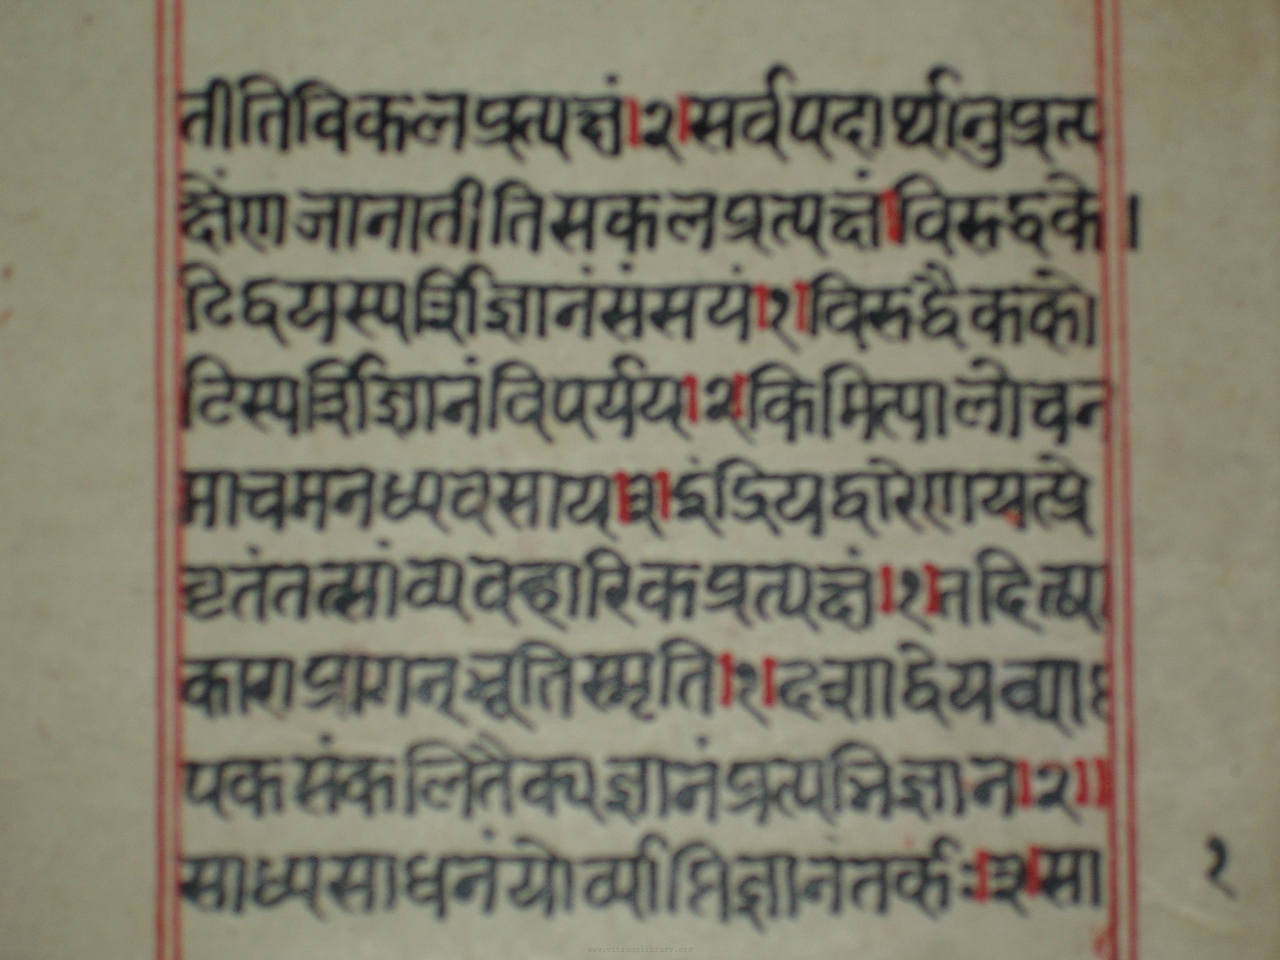 तीतिविकलप्रत्यक्षं।२।सर्वपदार्थानुप्रत्य
क्षेंणजानातीतिसकलप्रत्यक्षं।विरुद्धके।
टिद्वयस्पर्शिज्ञानंसंसयं।१।विरुद्धैकको
टिस्पर्शिज्ञानंविपर्यय।२।किमित्यालोचन
मात्रमनध्यवसाय।३।इंद्रियद्वारेणयत्प्रे
ष्टतंतत्सांव्यवहारिकप्रत्यक्षं।१।तदित्या
काराप्रागनुभूतिस्मृति।१।दर्शा
पकसंकलितैक्यज्ञानंप्रत्यभिज्ञान।२।।
साध्यसाधनंयोर्व्याप्तिज्ञानंतर्कः।३।सा
१
www.vitragalibrary.org